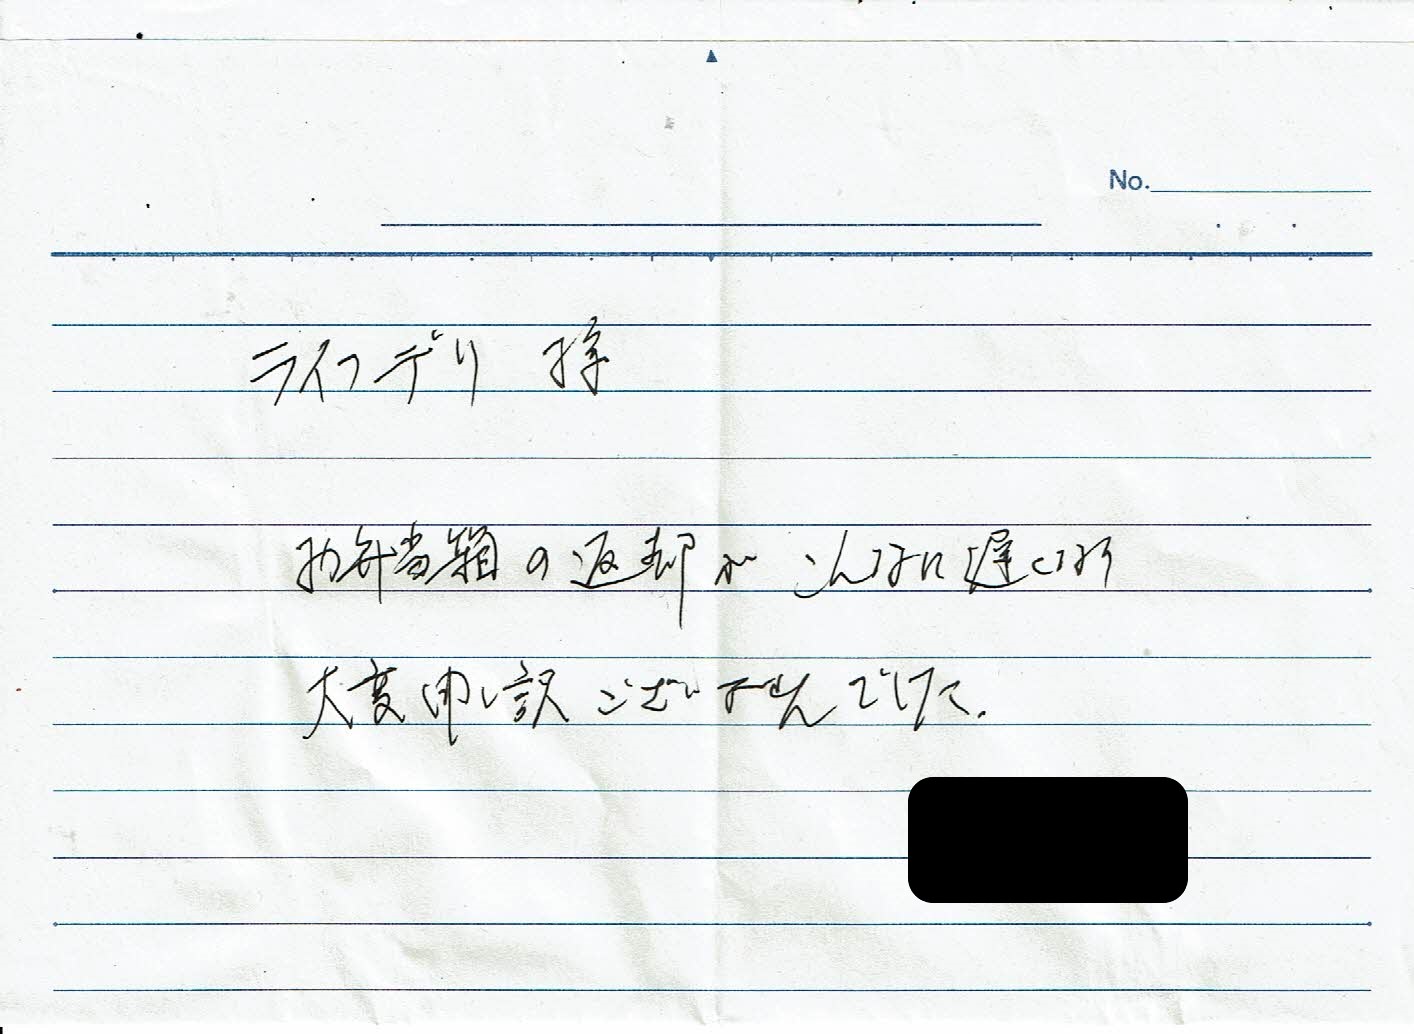 No.
ライフデリ 様
お弁当箱の返却が こんなに遅くなり
大変申し訳ございませんでした.